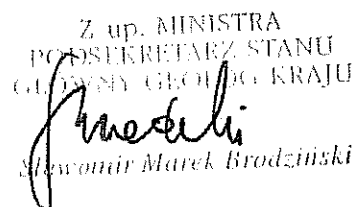 Z up. MINISTRA
PODSEKRETARZ STANU
GŁÓWNY GEOLOG KRAJU
Sławomir Marek Brodziński